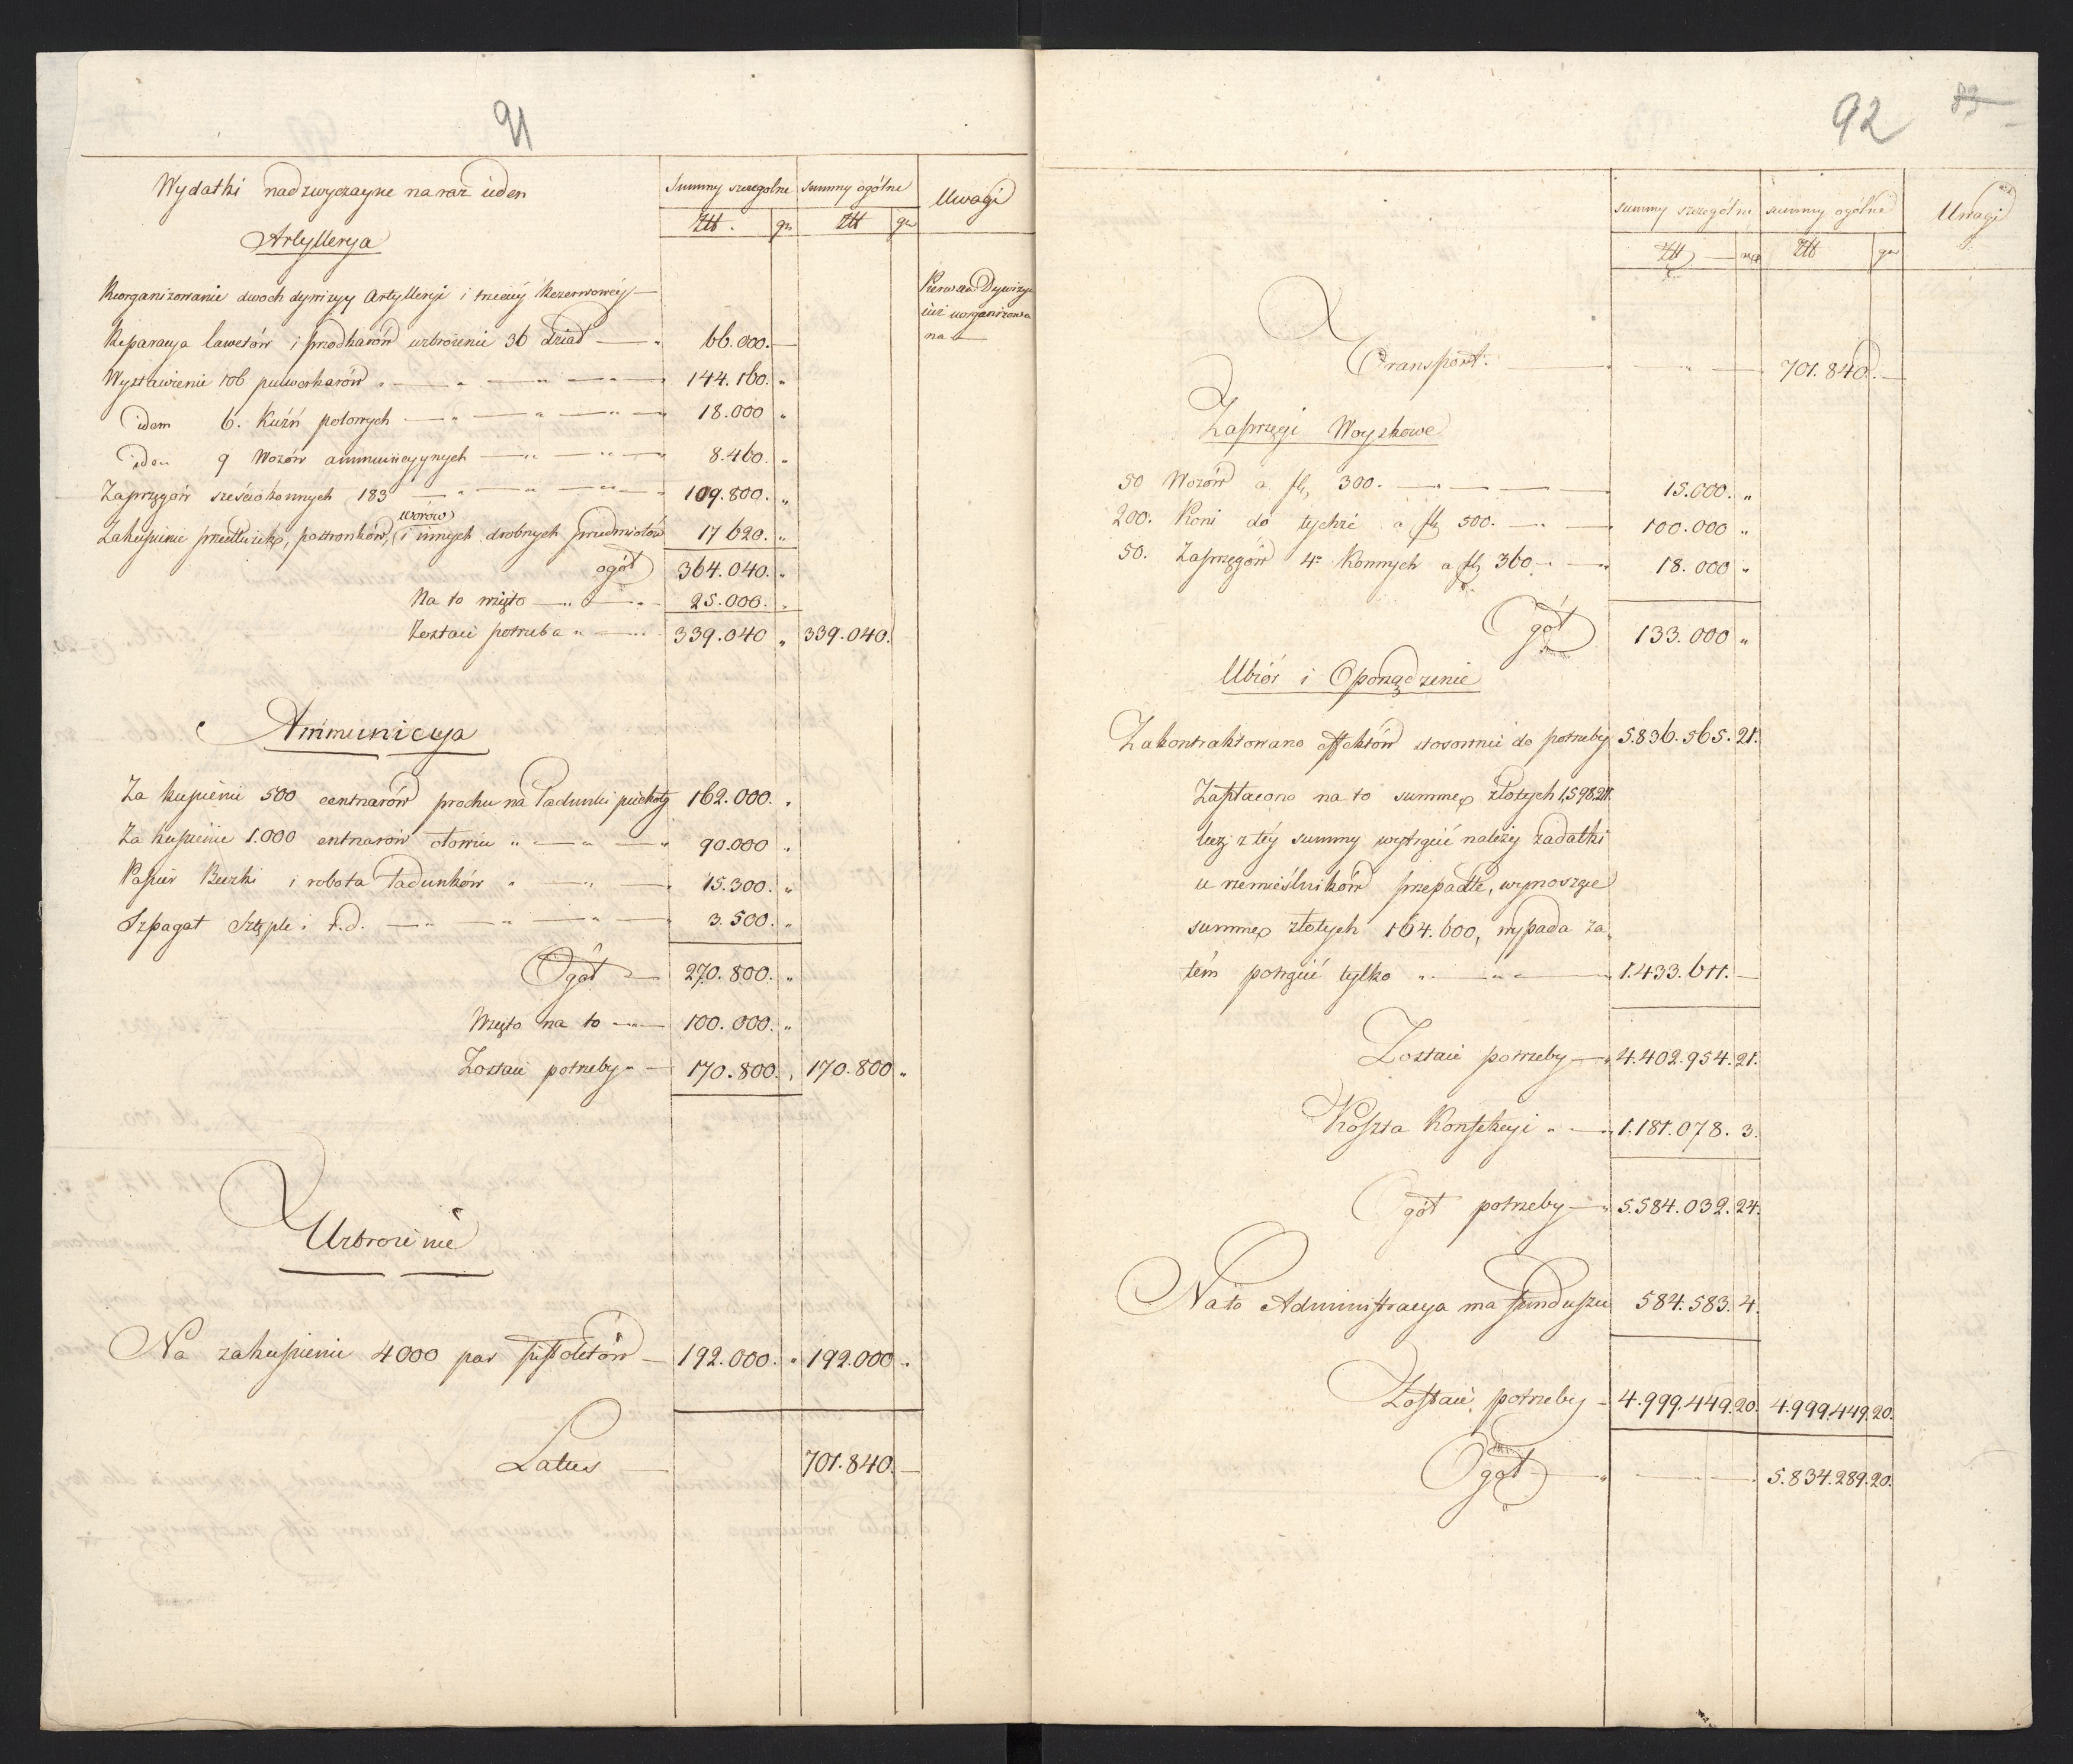 91
Wydatki nadzwyczayne na raz ieden
Summy szczegolne
summy ogólne
Uwagi
Złł. gr.
Złł gr
Artyllerya
Reorganizowanie dwoch dywizyy Artylleryi i trzeciey Rezerwowey —
Pierwsza Dywizya
iuż uorganizowa
na —
Reparacya lawetów i przodkarów uzbroienie 36 dział — 66.000. —
Wystawienie 106 pulwerkarów „ — „ — „ — 144.160. „
idem 6. Kuźń polowych — „ — „ — „ — 18.000 „
iden 9 Wozów ammunicyynych — „ — „ — 8.460. „
Zaprzęgów sześciokonnych 183 — „ — „ — 109.800. „
worów
Zakupienie przedłużek, postronków, i innych drobnych przedmiotów 17 620. „
ogół 364.040. „
Na to wzięto — „ — „ 25.000. „
Zostaie potrzeba „ — „ 339.040 „ 339.040.
Ammunicya
Za kupienie 500 centnarów prochu na Ładunki piechoty 162.000. „
Za kupienie 1.000 entnarów ołowiu „ — „ — „ 90.000 „
Papier Beczki i robota Ładunków „ — „ — 15.300. „
Szpagat Sztęple i t.d. — „ — „ — „ — 3.500. „
Ogół — 270.800. „
Wzięto na to — „ — 100.000. „
Zostaie potrzeby „ — 170.800. „ 170.800 „
Uzbroienie
Na zakupienie 4000 par pistoletów — 192.000. „ 192.000 „
Latus — 701.840. —
92
83
summy szczegółne
summy ogólne
Uwagi
Złł — gr
Złł gr
Transport. — „ — 701.840. —
Zaprzęgi Woyskowe
50 Wozów a fl, 300. — „ — 15.000. „
200. Koni do tychże a fl 500. — „ — 100.000 „
50. Zaprzęgów 4= Konnych a fl 360 — „ — „ 18.000 „
Ogół 133.000 „
Ubiór i Oporządzenie
Zakontraktowano effektów stosownie do potrzeby 5.836.565.21.
Zapłacono na to summę złotych 1,598,211.
lecz z téy summy wytrącić należy zadatki
u rzemieślników przepadłe, wynoszące
summę złotych 164.600, wypada za„
tém potrącić tylko „ — „ — „ — 1.433.611. —
Zostaie potrzeby — „ 4.402.954.21.
Koszta Konfekcyi „ — „ 1.181.078. 3.
Ogół potrzeby — „ 5.584.032.24.
Na to Administracya ma funduszu 584.583. 4.
Zostaie potrzeby — 4.999.449.20. 4.999.449.20.
Ogół — „ — 5.834.289.20.